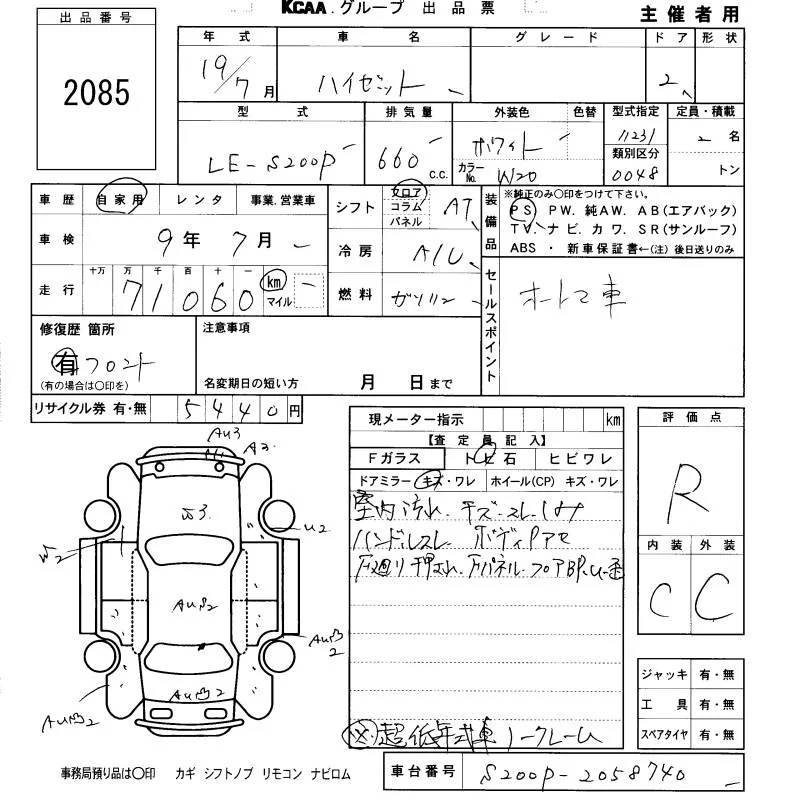 KCAA.グループ 出品票
主催者用
出品番号
2085
年式 車名 グレード ドア 形状
19/7月 ハイゼット 2
型式 排気量 外装色 色替 型式指定 定員・積載
LE-S200P 660 c.c. ホワイト カラーNo. W20 11231 2名
類別区分
0048 トン
車歴 自家用 レンタ 事業.営業車
車検 9年7月
走行 十万 万 千 百 十 一
71060 km マイル
シフト フロア コラム パネル AT
冷房 A/C
燃料 ガソリン
装備品
※純正のみ○印をつけて下さい。
PS PW. 純AW. AB(エアバック)
TV. ナビ. カワ. SR(サンルーフ)
ABS ・ 新車保証書←(注) 後日送りのみ
セールスポイント
オートマ車
修復歴 箇所
有 フロント
(有の場合は○印を)
注意事項
名変期日の短い方 月 日まで
リサイクル券 有・無 5440円
現メーター指示 km
【査定員記入】
Fガラス トビ石 ヒビワレ
ドアミラー キズ・ワレ ホイール(CP) キズ・ワレ
室内汚れ.キズ.スレ.シミ
ハンドルスレ ボディPアセ
下廻り
評価点
R
内装 外装
C C
AU3
A2
U2
W2
AU凹2
AU凹2
AU凹2
AU凹2
ジャッキ 有・無
工具 有・無
スペアタイヤ 有・無
超低年式車 ノークレーム
事務局預り品は○印 カギ シフトノブ リモコン ナビロム
車台番号 S200P-2058740